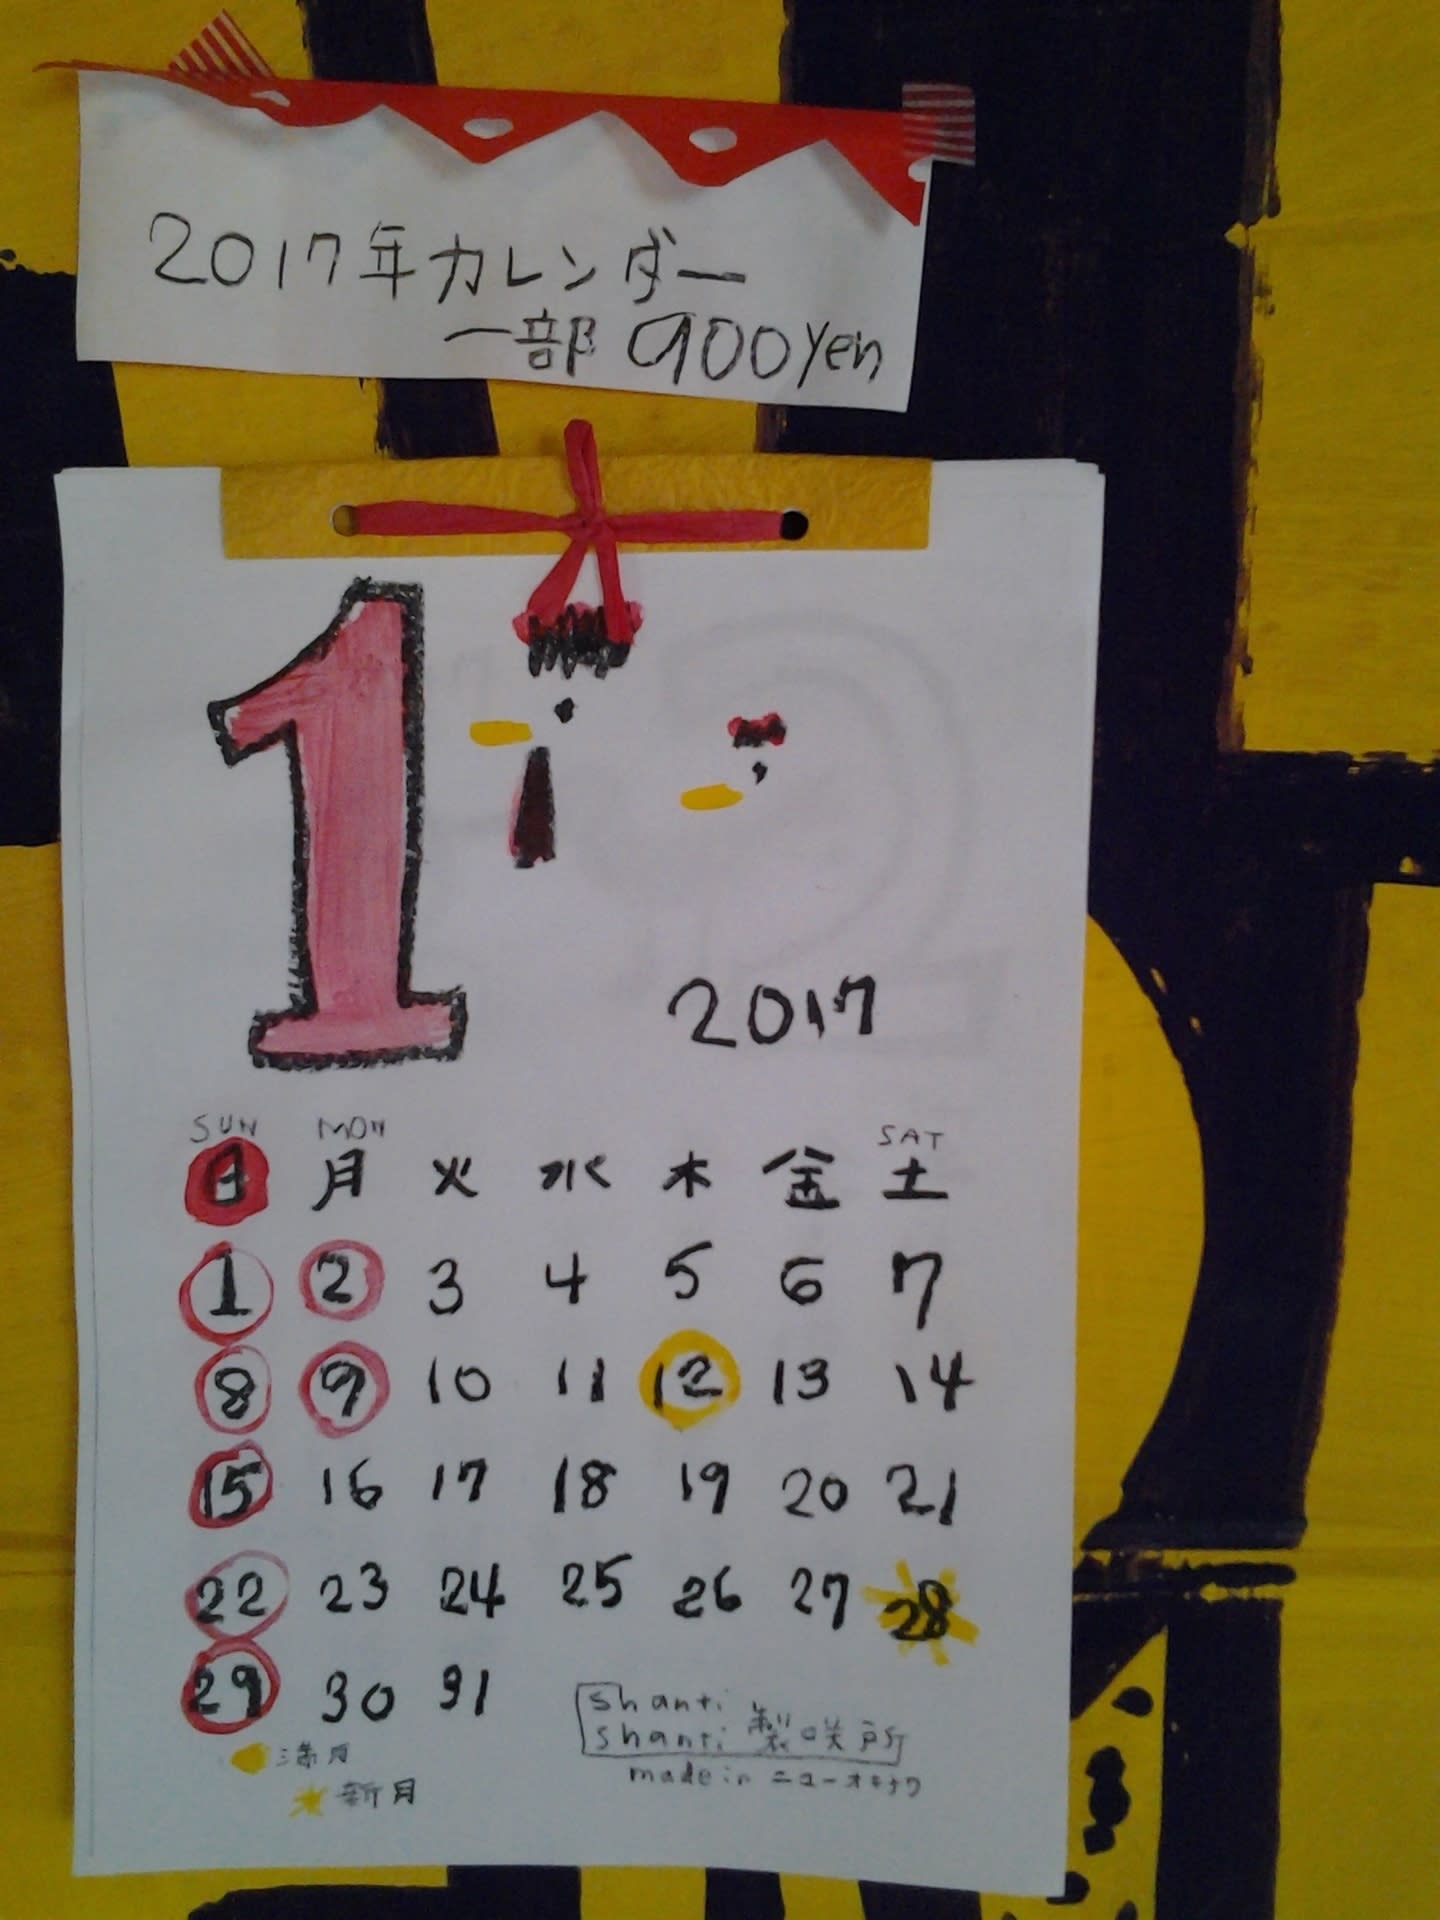 2017年カレンダー
一部 900yen
1
2017
SUN MON SAT
日 月 火 水 木 金 土
1 2 3 4 5 6 7
8 9 10 11 12 13 14
15 16 17 18 19 20 21
22 23 24 25 26 27 28
29 30 31
満月
新月
shanti
shanti 製咲所
made in ニューオキナワ